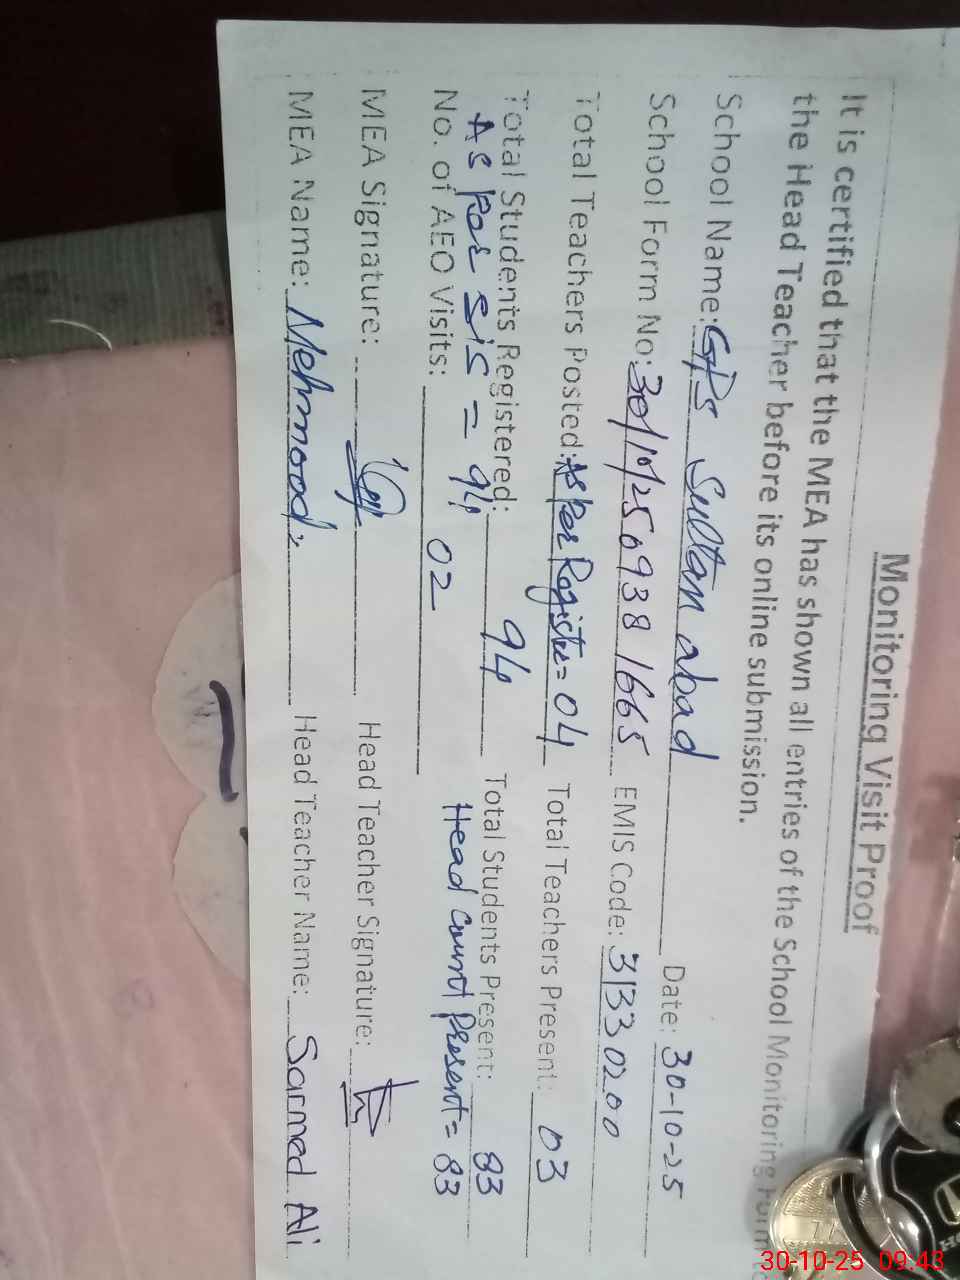 Monitoring Visit Proof
It is certified that the MEA has shown all entries of the School Monitoring Form to
the Head Teacher before its online submission.
School Name: GPS Sultan abad Date: 30-10-25
School Form No: 30/10/250938 1665 EMIS Code: 31330200
Total Teachers Posted: As Per Register = 04 Total Teachers Present: 03
Total Students Registered: 94 Total Students Present: 83
As Per SiS = 94 Head Count Present = 83
No. of AEO Visits: 02
MEA Signature: Head Teacher Signature:
MEA Name: Mehmood Head Teacher Name: Sarmed Ali
30-10-25 09:43